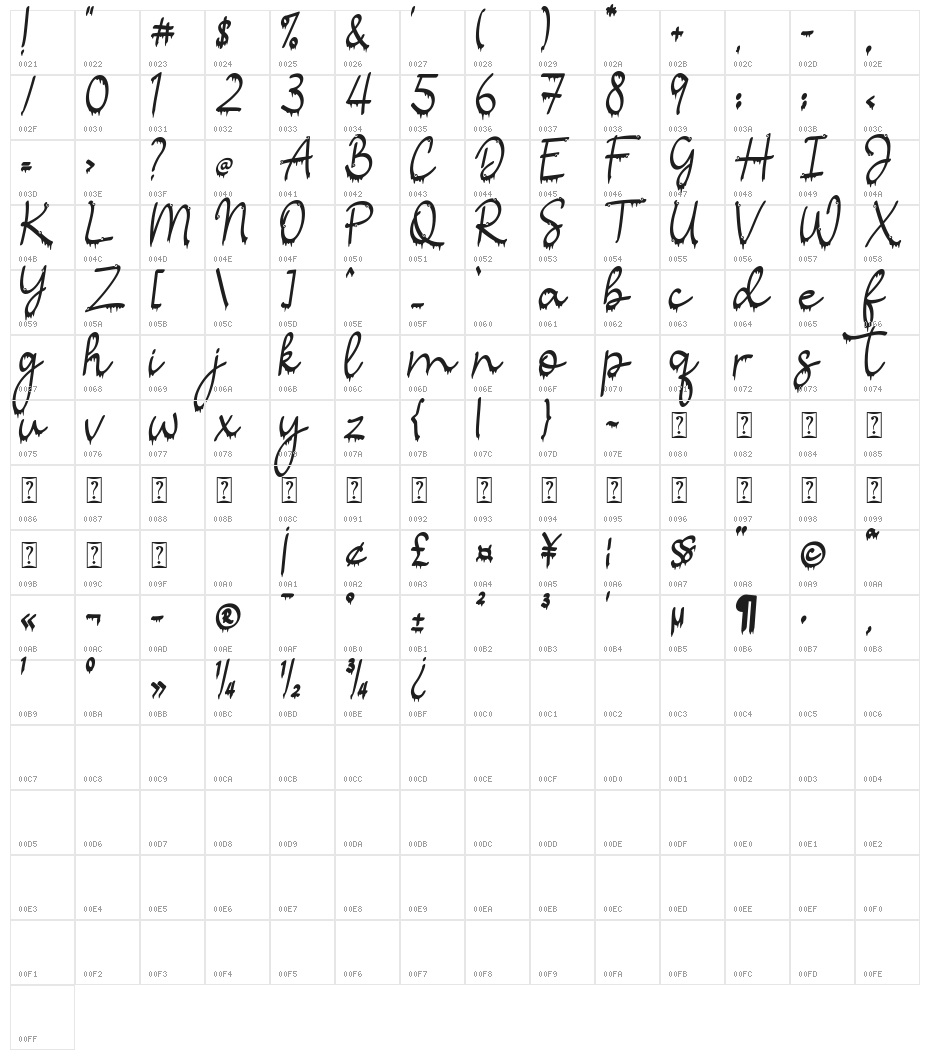 ! " # $ % & ' ( ) * + , - .
0021 0022 0023 0024 0025 0026 0027 0028 0029 002A 002B 002C 002D 002E
/ 0 1 2 3 4 5 6 7 8 9 : ; <
002F 0030 0031 0032 0033 0034 0035 0036 0037 0038 0039 003A 003B 003C
= > ? @ A B C D E F G H I J
003D 003E 003F 0040 0041 0042 0043 0044 0045 0046 0047 0048 0049 004A
K L M N O P Q R S T U V W X
004B 004C 004D 004E 004F 0050 0051 0052 0053 0054 0055 0056 0057 0058
Y Z [ \ ] ^ _ ` a b c d e f
0059 005A 005B 005C 005D 005E 005F 0060 0061 0062 0063 0064 0065 0066
g h i j k l m n o p q r s t
0067 0068 0069 006A 006B 006C 006D 006E 006F 0070 0071 0072 0073 0074
u v w x y z { | } ~ ? ? ? ?
0075 0076 0077 0078 0079 007A 007B 007C 007D 007E 0080 0082 0084 0085
? ? ? ? ? ? ? ? ? ? ? ? ? ?
0086 0087 0088 008B 008C 0091 0092 0093 0094 0095 0096 0097 0098 0099
? ? ? ¡ ¢ £ ¤ ¥ ¦ § ¨ © ª
009B 009C 009F 00A0 00A1 00A2 00A3 00A4 00A5 00A6 00A7 00A8 00A9 00AA
« ¬ - ® ¯ ° ± ² ³ ´ µ ¶ · ¸
00AB 00AC 00AD 00AE 00AF 00B0 00B1 00B2 00B3 00B4 00B5 00B6 00B7 00B8
¹ º » ¼ ½ ¾ ¿
00B9 00BA 00BB 00BC 00BD 00BE 00BF 00C0 00C1 00C2 00C3 00C4 00C5 00C6
00C7 00C8 00C9 00CA 00CB 00CC 00CD 00CE 00CF 00D0 00D1 00D2 00D3 00D4
00D5 00D6 00D7 00D8 00D9 00DA 00DB 00DC 00DD 00DE 00DF 00E0 00E1 00E2
00E3 00E4 00E5 00E6 00E7 00E8 00E9 00EA 00EB 00EC 00ED 00EE 00EF 00F0
00F1 00F2 00F3 00F4 00F5 00F6 00F7 00F8 00F9 00FA 00FB 00FC 00FD 00FE
00FF